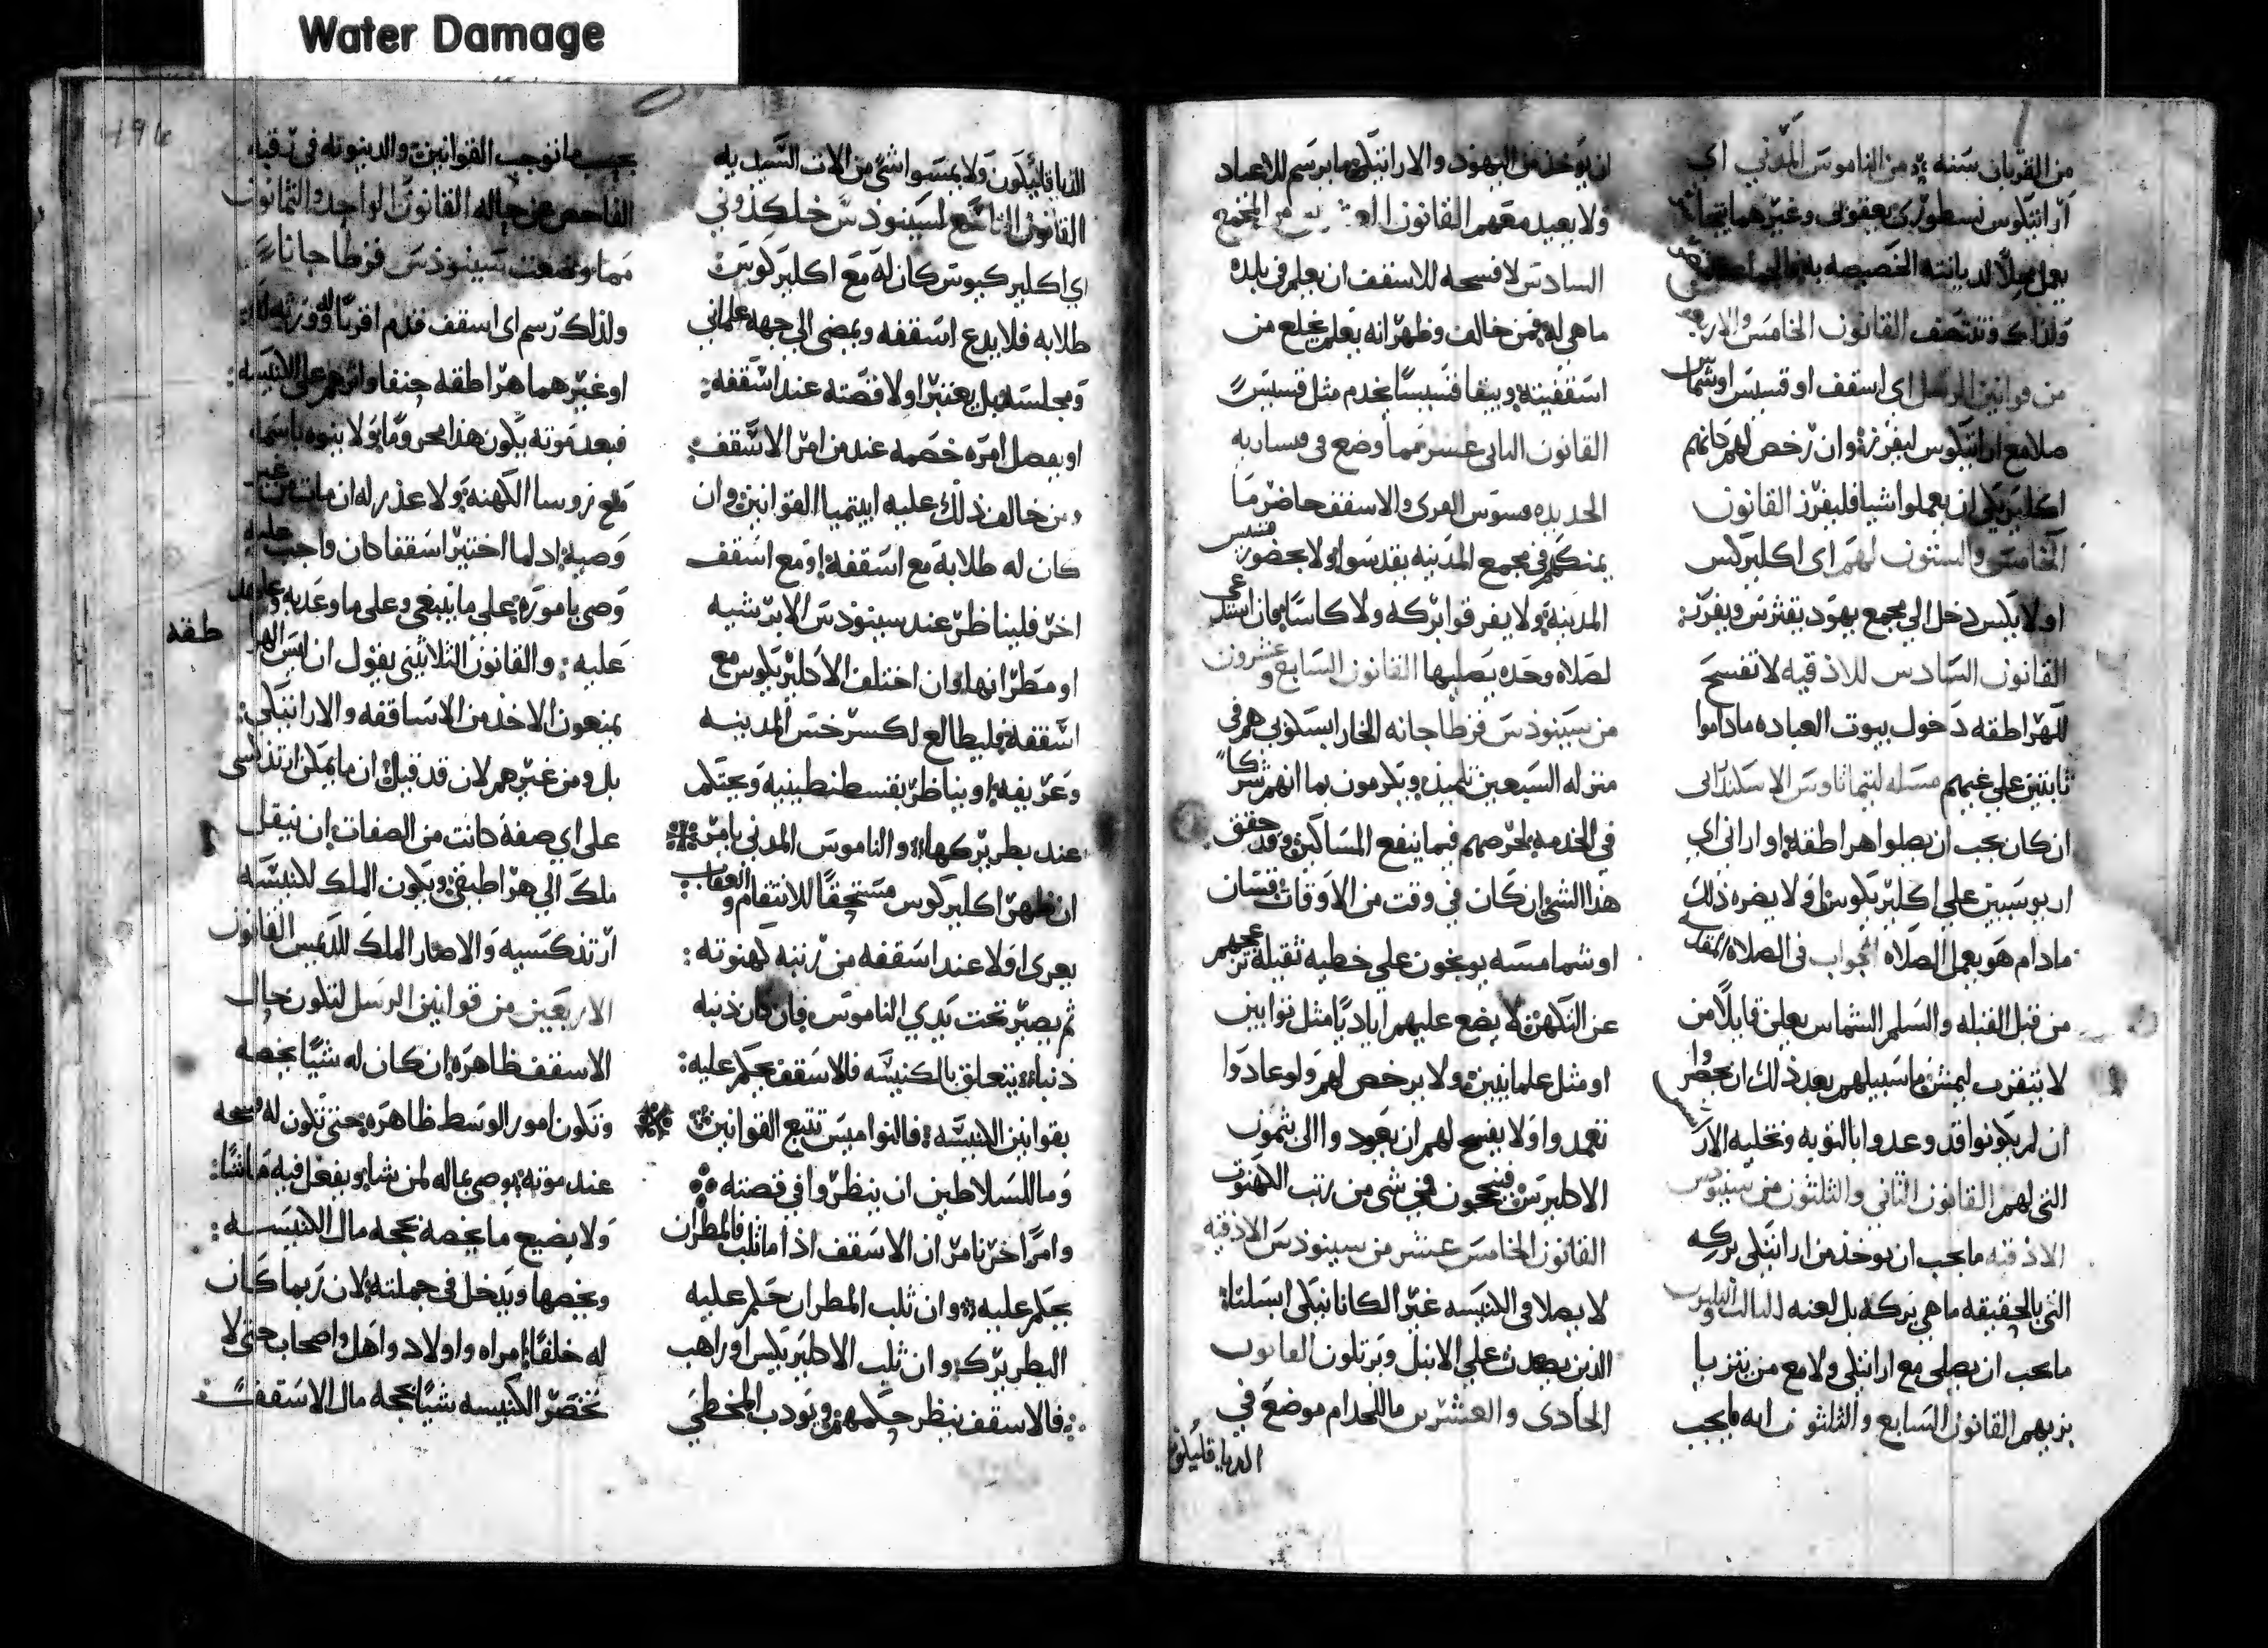 Water Damage
من القربان سنه ومن الناموس المدني اي
اراتيكوس نسطوري يعقوبي وغيرهما
يعمل عملا لديانته الخصيصه به
ولذلك القانون الخامس والاربعون
من قوانين الرسل اي اسقف او قسيس او شماس
صلا مع اراتيكوس ليفرز وان رخص لهم كانهم
اكليريكي ان يعملوا شيا فليفرز القانون
الخامس والستون لهم اي اكليركس
او لايكس دخل الي مجمع يهود يفترس ويفرز
القانون السادس للاذقيه لا تفسح
للهراطقه دخول بيوت العباده ماداموا
ثابتين علي غيهم مسله لتيماثاوس الاسكندراني
ان كان يجب ان يصلوا هراطقه او اراني اي
اريوسيين علي اكليريكوس او لا يضره ذلك
مادام هو يعمل الصلاه الجواب في الصلاه المقدسه
من قبل القبله والسلم الشماس يعلن قايلا من
لا يتقرب ليمش ما سبيلهم بعد ذلك ان يحضروا
ان لم يكونوا قد وعدوا بالتوبه وتخليه الارسس
التي لهم القانون الثاني والثلثون من سينودس
الاذقيه ما يجب ان يوخذ من اراتيكي بركه
التي بالحقيقه ما هي بركه بل لعنه الثالث والثلثون
ما يجب ان يصلي مع اراتيكي ولا مع من يتزيا
بزيهم القانون السابع والثلثون انه ما يجب
ان يوخذ من اليهود والاراتيكي ما يرسم للاعياد
ولا يعيد معهم القانون من المجمع
السادس لا فسحه للاسقف ان يعلم في بلده
ما هي له فمن خالف وظهر انه يعلم يخلع من
اسقفيته ويبقا قسيسا يخدم مثل قسيس
القانون الثاني عشر مما وضع في قيساريه
الجديده قسوس القري والاسقف حاضر ما
يمكنهم في مجمع المدينه يقدسوا ولا بحضور قسيس
المدينه ولا يفرقوا بركه ولا كاسا فان استدعي
لصلاه وحده يصليها القانون السابع وعشرون
من سينودس قرطاجانه الخاراپيسكوبي هم في
منزله السبعين تلميذ ويكرمون بما انهم شركا
في الخدمه لحرصهم فيما ينفع المساكين وقد حقق
هذا الشي ان كان في وقت من الاوقات قسان
او شمامسه يوبخون علي خطيه ثقيله ترجمهم
عن الكهنه لا يضع عليهم ايادي مثل توابين
او مثل علمانيين ولا يرخص لهم ولو عادوا
تعمدوا ولا يفسح لهم ان يعودوا الي ثمون
الاكليرس فينجحون في شي من رتب الكهنوت
القانون الخامس عشر من سينودس الاذقيه
لا يصلا في الكنيسه غير الكانانيكي ابسلتاه
الذين يصعدون علي الانبل ويرتلون القانون
الحادي والعشرين ما للخدام موضع في
الدياقليكون
الدياقليكون ولا يمسوا شي من الات السيديه
القانون التاسع لسينودس خلكدوني
اي اكليركيوس كان له مع اكليركوس
طلابه فلا يدع اسقفه ويمضي الي جهه علماني
ومجلسه بل يعتبر اولا قصته عند اسقفه
او يفصل امره خصمه عند من امر الاسقف
ومن خالف ذلك عليه ايبتيميا القوانين وان
كان له طلابه مع اسقفه او مع اسقف
اخر فليناظر عند سينودس الابرشيه
او مطرانها وان اختلف الاكليريكوس مع
اسقفه فليطالع لكسرخس المدينه
وعريفه او يناظر بقسطنطينيه ويحتكم
عند بطريركها والناموس المدني يامر
ان ظهر اكليركوس مستحقا للانتقام والعقاب
يعري اولا عند اسقفه من رتبه كهنوته
ثم يصير تحت يدي الناموس فان كان ذنبه
ذنبا يتعلق بالكنيسه فالاسقف يحكم عليه
بقوانين الكنيسه فالنواميس تتبع القوانين
وما للسلاطين ان ينظروا في قصته
وامرا اخر نامر ان الاسقف اذا ما ثلب فالمطران
يحكم عليه وان ثلب المطران حكم عليه
البطريرك وان ثلب الاكليريكس او راهب
فالاسقف ينظر حكمهم ويودب المخطي
بحسب ما توجب القوانين والدينونه في رقبه
الفاحص عن حاله القانون الواحد والثمانون
مما وضعت سينودس قرطاجانا
ولذلك رسم اي اسقف قدم اقربا
او غيرهما هراطقه حنفا واثرهم علي الكنيسه
فبعد موته يكون هذا محروما ولا ينوه باسمه
مع روسا الكهنه ولا عذر له ان مات من غير
وصيه اد لما اختير اسقفا كان واجب عليه
وصي باموره علي ما ينبغي وعلي ما وعد به
عليه والقانون الثلاثيني يقول ان ليس الهرا
طقه
يمنعون الاخذ من الاساقفه والاراتيكي
بل ومن غيرهم لان قد قيل ان ما يمكن ارتدكسي
علي اي صفه كانت من الصفات ان ينقل
ملك الي هراطيقي ويكون الملك لكنيسه
ارتدكسيه والا صار الملك للديمس القانون
الاربعين من قوانين الرسل لتكون حال
الاسقف ظاهره ان كان له شيا يخصه
وتكون امور الوسط ظاهره حتي تكون له فسحه
عند موته يوصي بماله لمن شا ويفعل فيه ما شا
ولا يضيع ما يخصه بحجه مال الكنيسه
ويخصها ويدخل في جملته لان ربما كان
له خلفا امراه واولاد واهل واصحاب حتي لا
تخصر الكنيسه شيا بحجه مال الاسقف